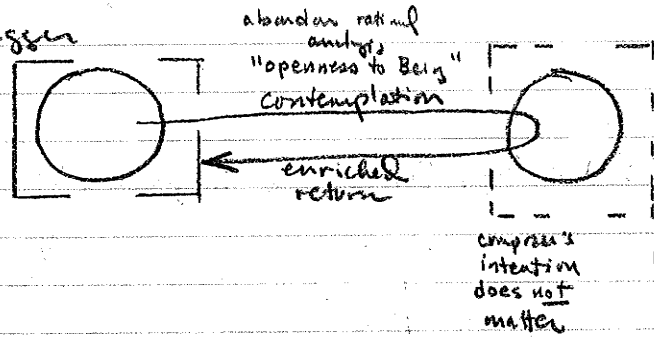 gger
abandon rational
analysis
"openness to Being"
contemplation
enriched
return
composer's
intention
does not
matter